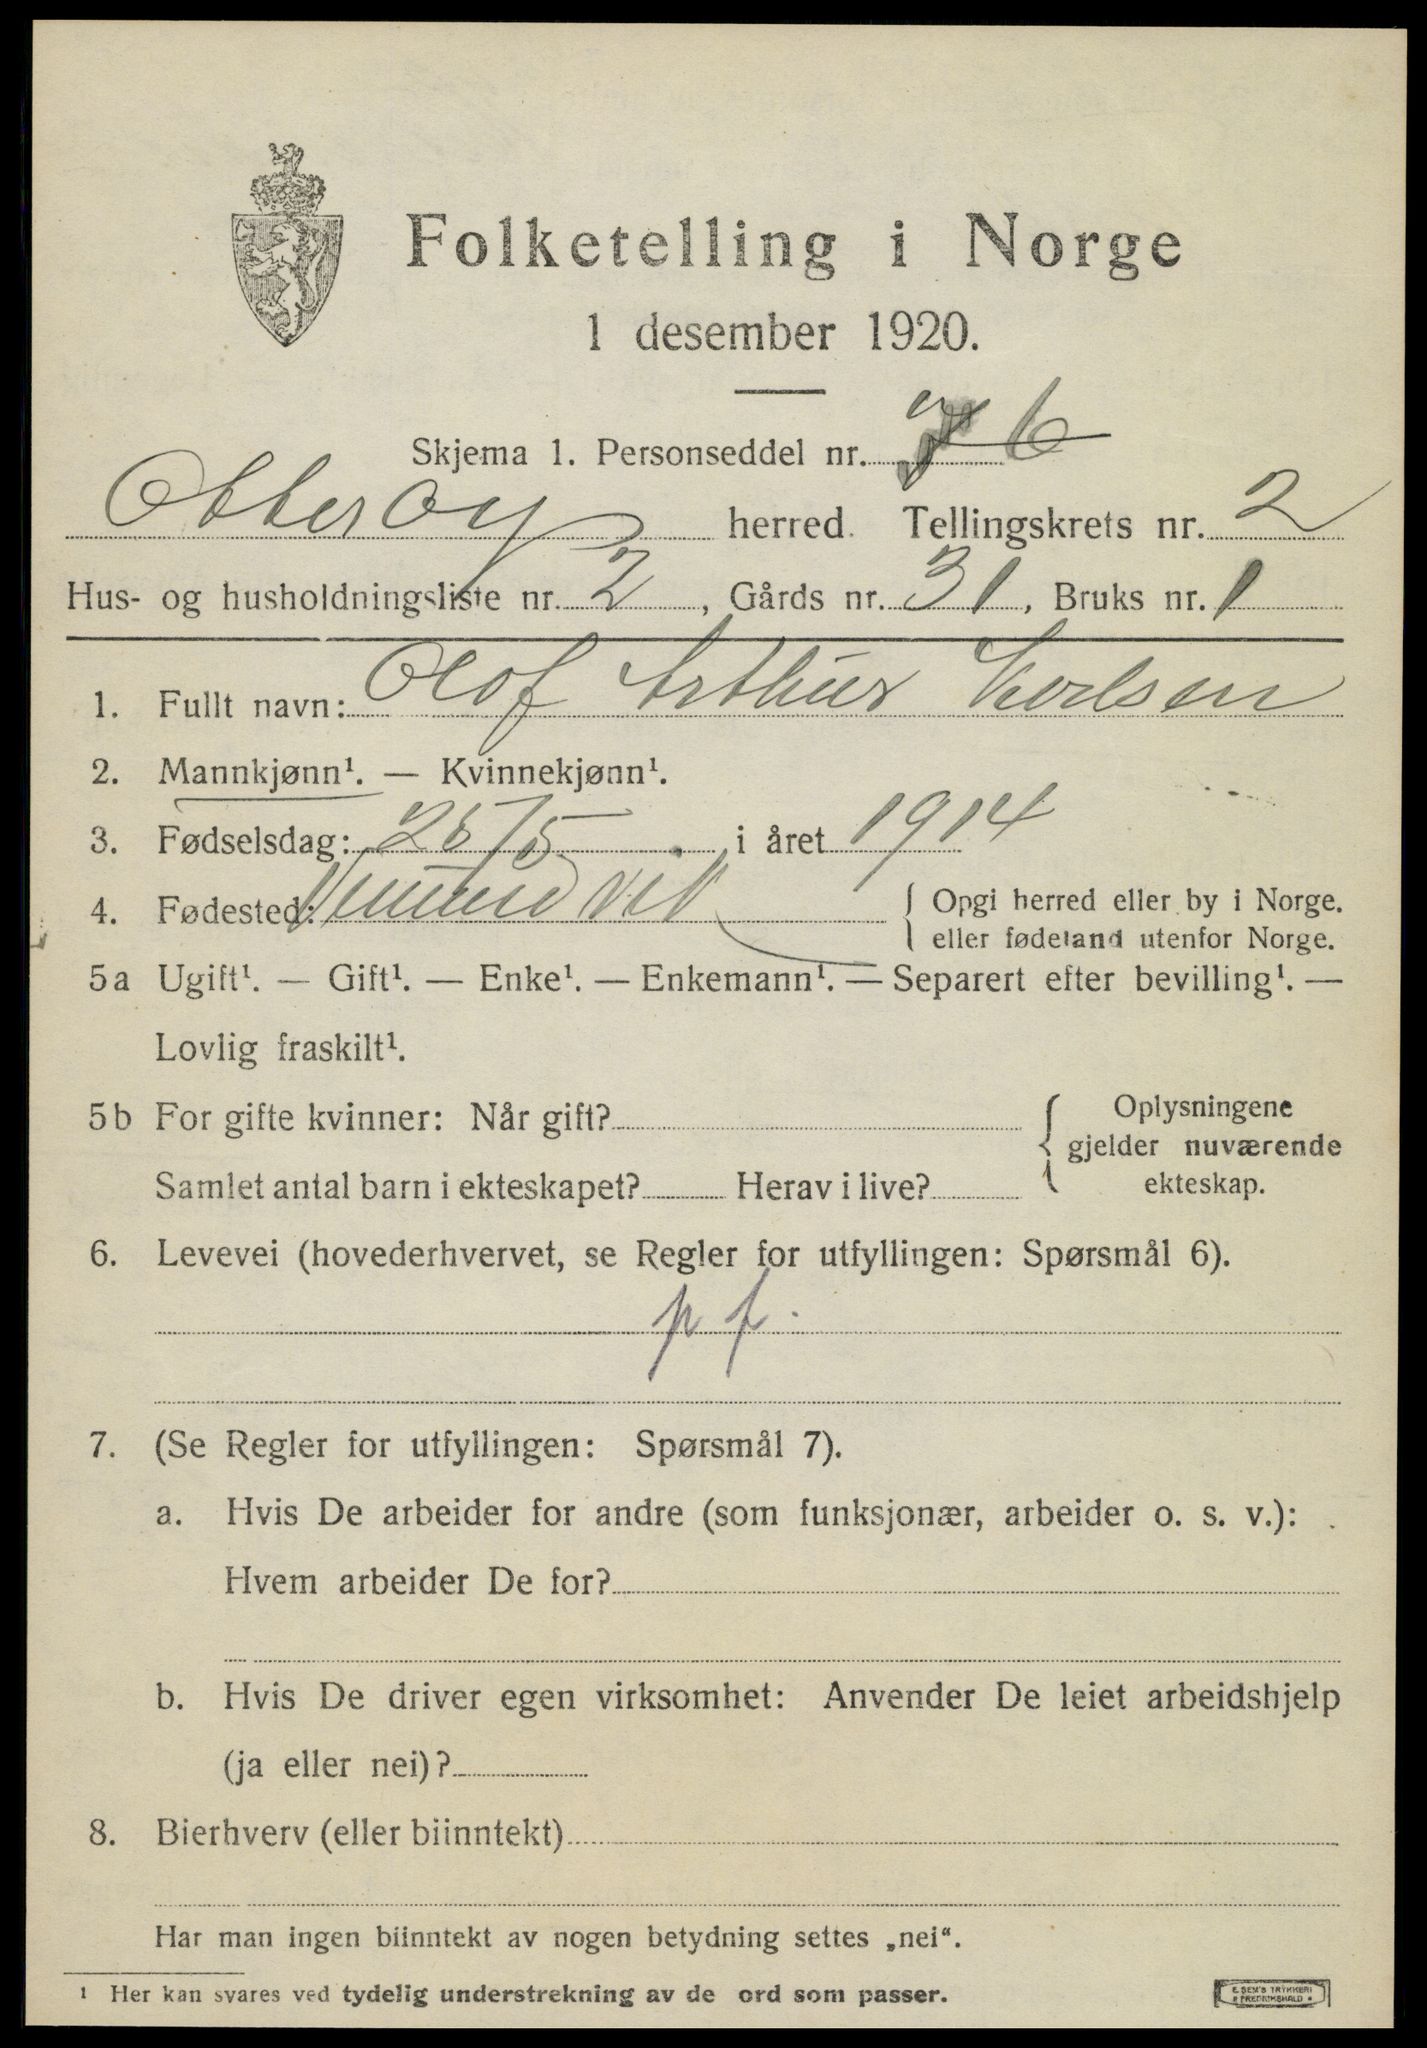 Folketelling i Norge
1 desember 1920.
Skjema 1. Personseddel nr. 6
Otterøy herred. Tellingskrets nr. 2
Hus- og husholdningsliste nr. 2, Gårds nr. 31, Bruks nr. 1
1. Fullt navn: Olof Arthur
2. Mannkjønn¹. — Kvinnekjønn¹.
3. Fødselsdag: 28/5 i året 1914
4. Fødested: { Opgi herred eller by i Norge.
eller fødeland utenfor Norge.
5a Ugift¹. — Gift¹. — Enke¹. — Enkemann¹. — Separert efter bevilling¹. —
Lovlig fraskilt¹.
5b For gifte kvinner: Når gift?
Samlet antal barn i ekteskapet? Herav i live?
{ Oplysningene
gjelder nuværende
ekteskap.
6. Levevei (hovederhvervet, se Regler for utfyllingen: Spørsmål 6).
p f.
7. (Se Regler for utfyllingen: Spørsmål 7).
a. Hvis De arbeider for andre (som funksjonær, arbeider o. s. v.):
Hvem arbeider De for?
b. Hvis De driver egen virksomhet: Anvender De leiet arbeidshjelp
(ja eller nei)?
8. Bierhverv (eller biinntekt)
Har man ingen biinntekt av nogen betydning settes „nei“.
¹ Her kan svares ved tydelig understrekning av de ord som passer.
E. SEM'S TRYKKERI
FREDRIKSHALD